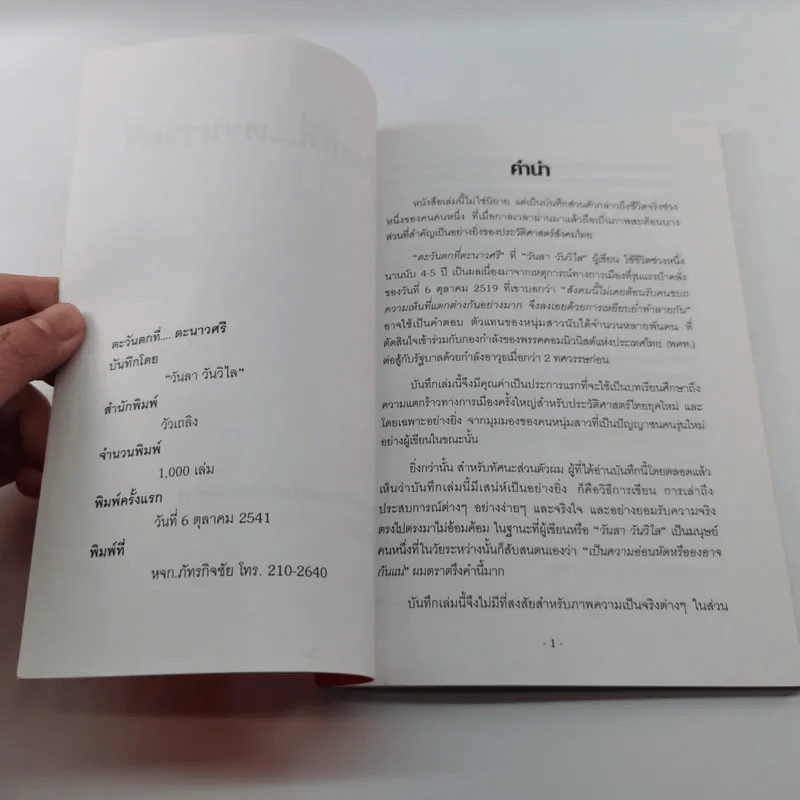 ตะวันตกที่.... ตะนาวศรี
บันทึกโดย
"วันลา วันวิไล"
สำนักพิมพ์
วัวเถลิง
จำนวนพิมพ์
1,000 เล่ม
พิมพ์ครั้งแรก
วันที่ 6 ตุลาคม 2541
พิมพ์ที่
หจก.ภัทรกิจชัย โทร. 210-2640
คำนำ
หนังสือเล่มนี้ไม่ใช่นิยาย แต่เป็นบันทึกส่วนตัวกล่าวถึงชีวิตจริงช่วง
หนึ่งของคนคนหนึ่ง ที่เมื่อกาลเวลาผ่านมาแล้วถือเป็นภาพสะท้อนบาง
ส่วนที่สำคัญเป็นอย่างยิ่งของประวัติศาสตร์สังคมไทย
"ตะวันตกที่ตะนาวศรี" ที่ "วันลา วันวิไล" ผู้เขียน ใช้ชีวิตช่วงหนึ่ง
นานนับ 4-5 ปี เป็นผลเนื่องมาจากเหตุการณ์ทางการเมืองที่รุนแรงบ้าคลั่ง
ของวันที่ 6 ตุลาคม 2519 ที่เขาบอกว่า "สังคมนี้ไม่เคยต้อนรับคนขบถ
ความเห็นที่แตกต่างกันอย่างมาก จึงลงเอยด้วยการเหยียบย่ำทำลายกัน"
อาจใช้เป็นคำตอบ ตัวแทนของหนุ่มสาวนับได้จำนวนหลายพันคน ที่
ตัดสินใจเข้าร่วมกับกองกำลังของพรรคคอมมิวนิสต์แห่งประเทศไทย (พคท.)
ต่อสู้กับรัฐบาลด้วยกำลังอาวุธเมื่อกว่า 2 ทศวรรษก่อน
บันทึกเล่มนี้จึงมีคุณค่าเป็นประการแรกที่จะใช้เป็นบทเรียนศึกษาถึง
ความแตกร้าวทางการเมืองครั้งใหญ่สำหรับประวัติศาสตร์ไทยยุคใหม่ และ
โดยเฉพาะอย่างยิ่ง จากมุมมองของคนหนุ่มสาวที่เป็นปัญญาชนคนรุ่นใหม่
อย่างผู้เขียนในขณะนั้น
ยิ่งกว่านั้น สำหรับทัศนะส่วนตัวผม ผู้ที่ได้อ่านบันทึกนี้โดยตลอดแล้ว
เห็นว่าบันทึกเล่มนี้มีเสน่ห์เป็นอย่างยิ่ง ก็คือวิธีการเขียน การเล่าถึง
ประสบการณ์ต่างๆ อย่างง่ายๆ และจริงใจ และอย่างยอมรับความจริง
ตรงไปตรงมาไม่อ้อมค้อม ในฐานะที่ผู้เขียนหรือ "วันลา วันวิไล" เป็นมนุษย์
คนหนึ่งที่ในวัยระหว่างนั้นก็สับสนตนเองว่า "เป็นความอ่อนหัดหรือองอาจ
กันแน่" ผมตราตรึงคำนี้มาก
บันทึกเล่มนี้จึงไม่มีที่สงสัยสำหรับภาพความเป็นจริงต่างๆ ในส่วน
- 1 -